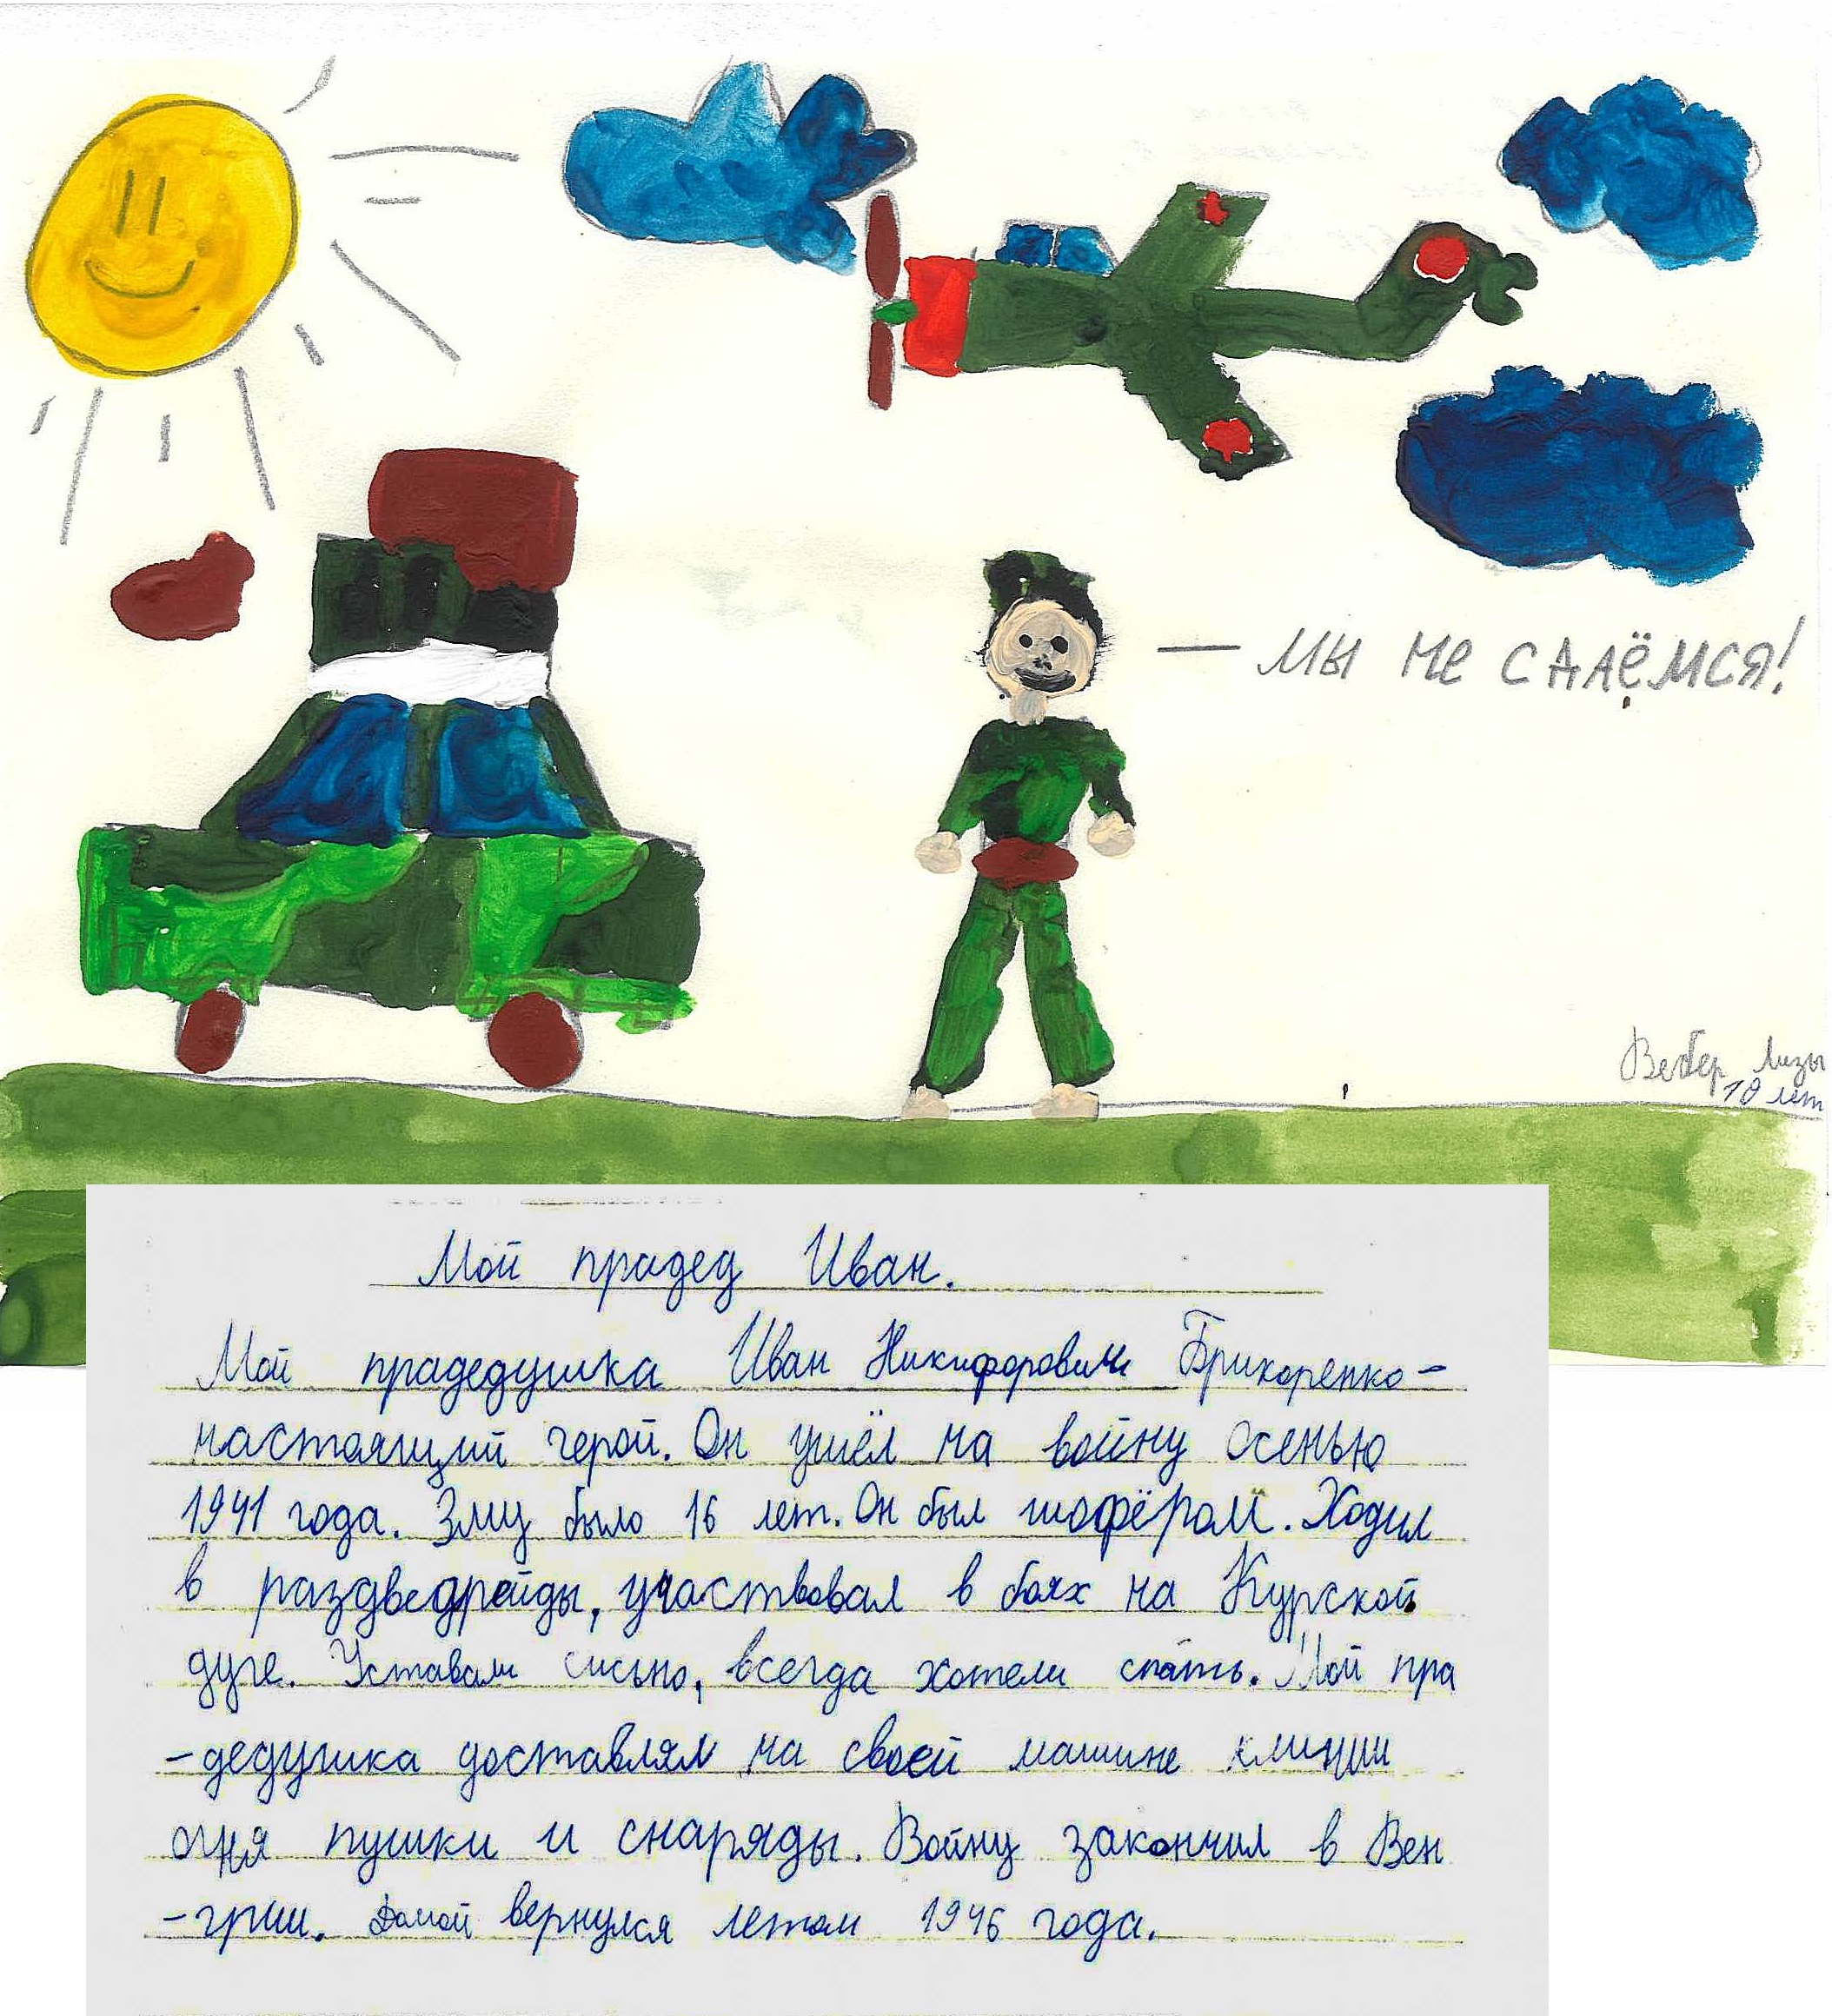 — мы не сдаёмся!
Вебер Лизы
10 лет
Мой прадед Иван.
Мой прадедушка Иван Никифорович Брихоренко -
настоящий герой. Он ушёл на войну осенью
1941 года. Эму было 16 лет. Он был шофёром. Ходил
в раздведрейды, участвовал в боях на Курской
дуге. Уставали сисьно, всегда хотели спать. Мой пра
-дедушка доставлял на своей машине к линии
огня пушки и снаряды. Войну закончил в Вен
-грии. Домой вернулся летом 1946 года.